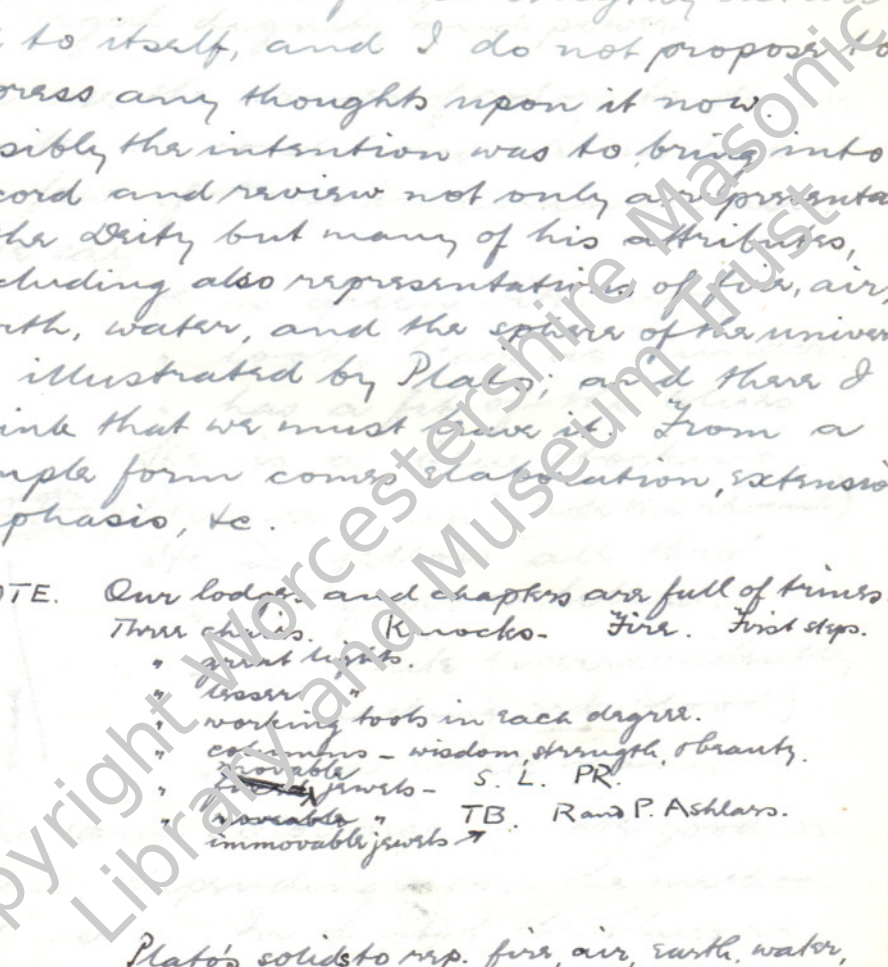 to itself, and I do not propose to
press any thoughts upon it now.
sibly the intention was to bring into
cord and review not only a representa
the Deity but many of his attributes,
cluding also representations of fire, air,
rth, water, and the sphere of the univer
illustrated by Plato; and there I
ink that we must leave it. From a
mple form comes elaboration, extensio
phasis, &c.
OTE. Our lodges and chapters are full of trines.
Three chairs. Knocks- Fire. First steps.
" great lights.
" lesser "
" working tools in each degree.
" columns - wisdom, strength, & beauty.
movable
" fixed jewels - S. L. PR.
" moveable " TB. R and P. Ashlars.
immovable jewels
Plato's solids to rep. fire, air, earth, water,
Copyright Worcestershire Masonic
Library and Museum Trust